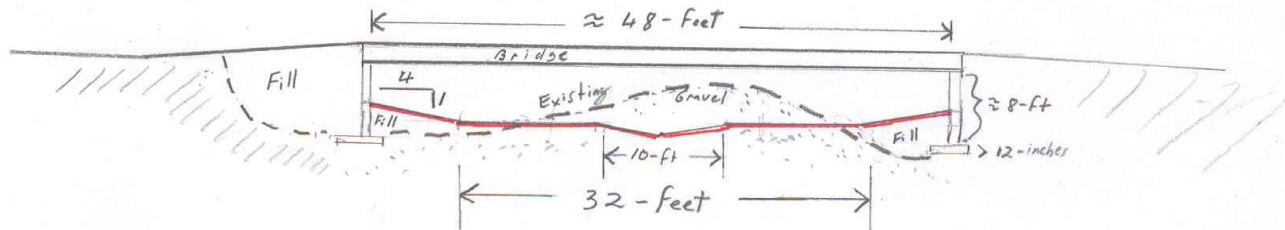 ≈ 48-feet
Bridge
Fill
4
1
Existing Gravel
≈ 8-ft
Fill
Fill
10-ft
> 12-inches
32-feet